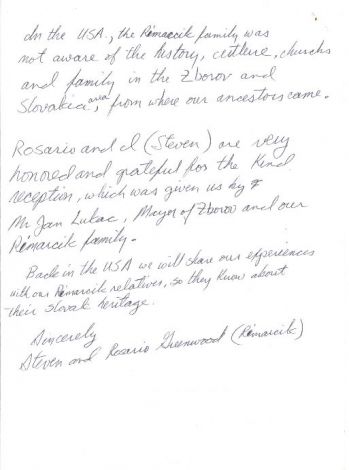 In the USA., the Rimarcik family was
not aware of the history, cultture, churchs
and family in the Zborov and
Slovakia area, from where our ancestors came.
Rosario and I (Steven) are very
honored and grateful for the Kind
reception, which was given us by
Mr Jan Lukac, Mayor of Zborov and our
Rimarcik family.
Back in the USA we will share our experiences
with our Rimarcik relatives, so they know about
their Slovak heritage.
Sincerely
Steven and Rosario Greenwood (Rimarcik)